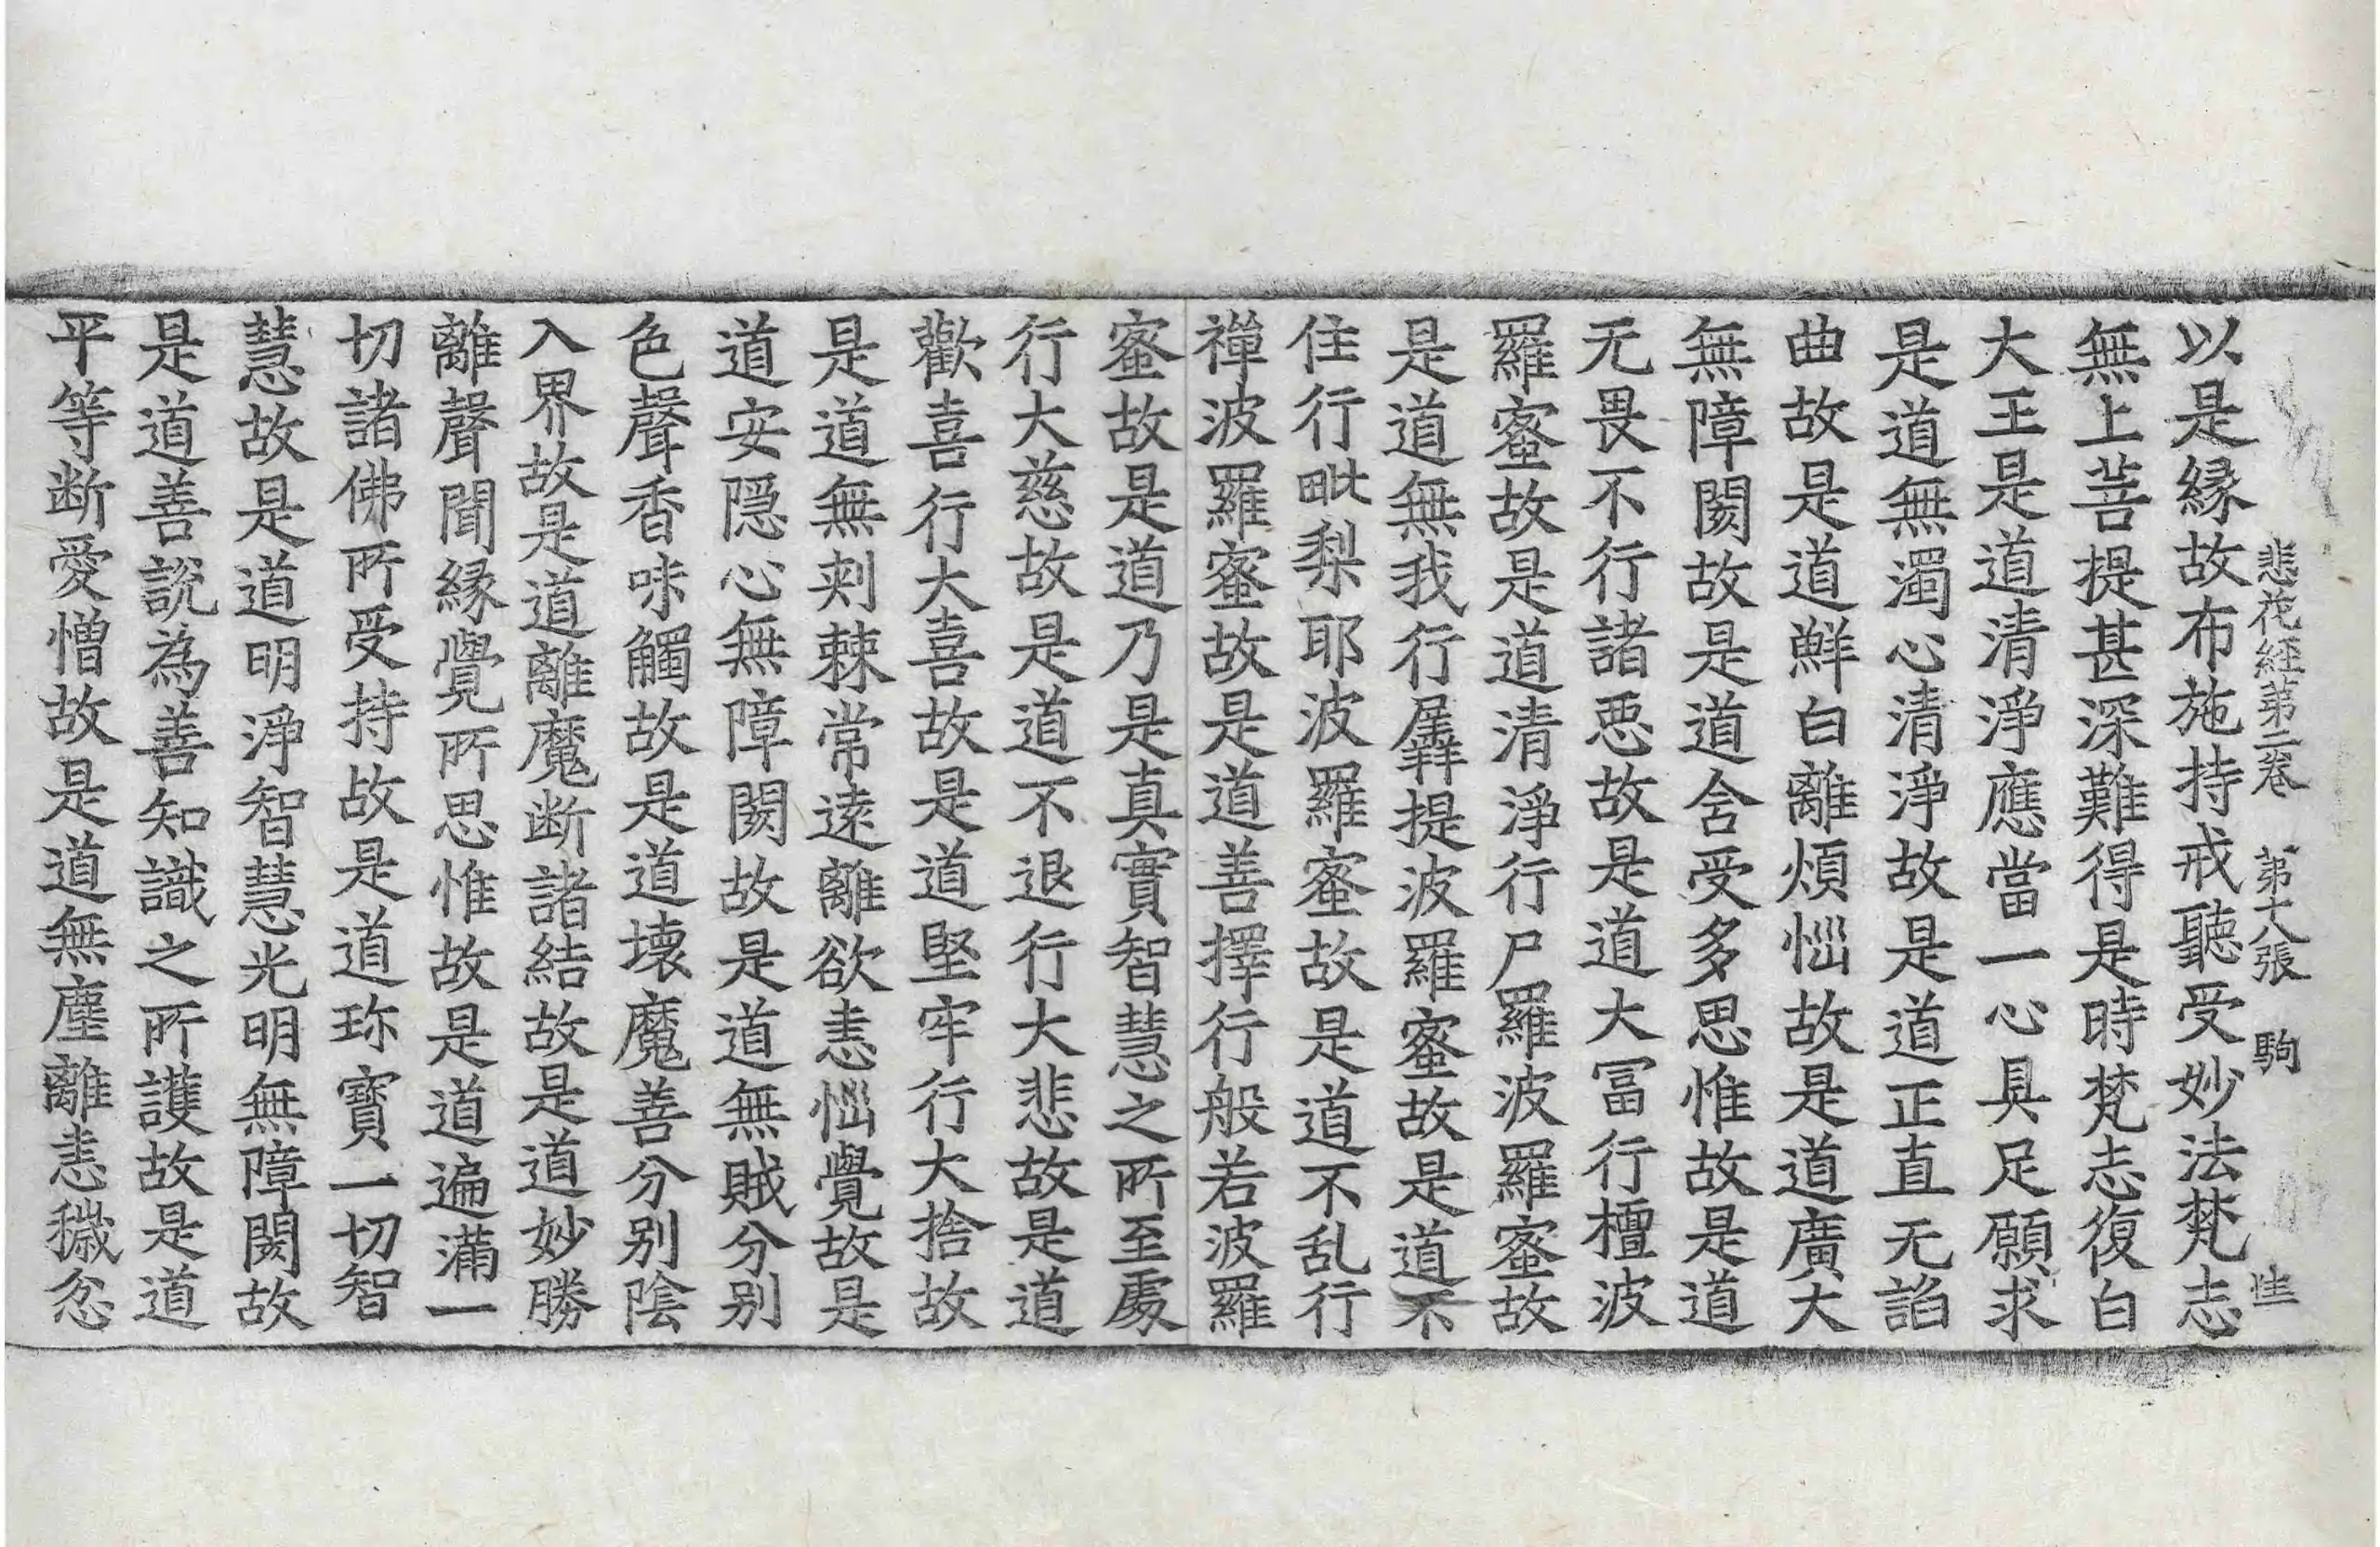 悲花経第二卷　第十八張　駒
以是縁故布施持戒聽受妙法梵志
無上菩提甚深難得是時梵志復白
大王是道清淨應當一心具足願求
是道無濁心清淨故是道正直无諂
曲故是道鮮白離煩惱故是道廣大
無障閡故是道含受多思惟故是道
无畏不行諸惡故是道大冨行檀波
羅蜜故是道清淨行尸羅波羅蜜故
是道無我行羼提波羅蜜故是道不
住行毗梨耶波羅蜜故是道不乱行
禪波羅蜜故是道善擇行般若波羅
蜜故是道乃是真實智慧之所至處
行大慈故是道不退行大悲故是道
歡喜行大喜故是道堅牢行大捨故
是道無刾棘常遠離欲恚惱覺故是
道安隱心無障閡故是道無賊分别
色聲香味觸故是道壞魔善分别陰
入界故是道離魔断諸結故是道妙勝
離聲聞縁覺所思惟故是道遍滿一
切諸佛所受持故是道珎寶一切智
慧故是道明淨智慧光明無障閡故
是道善說為善知識之所護故是道
平等断愛憎故是道無塵離恚穢忿